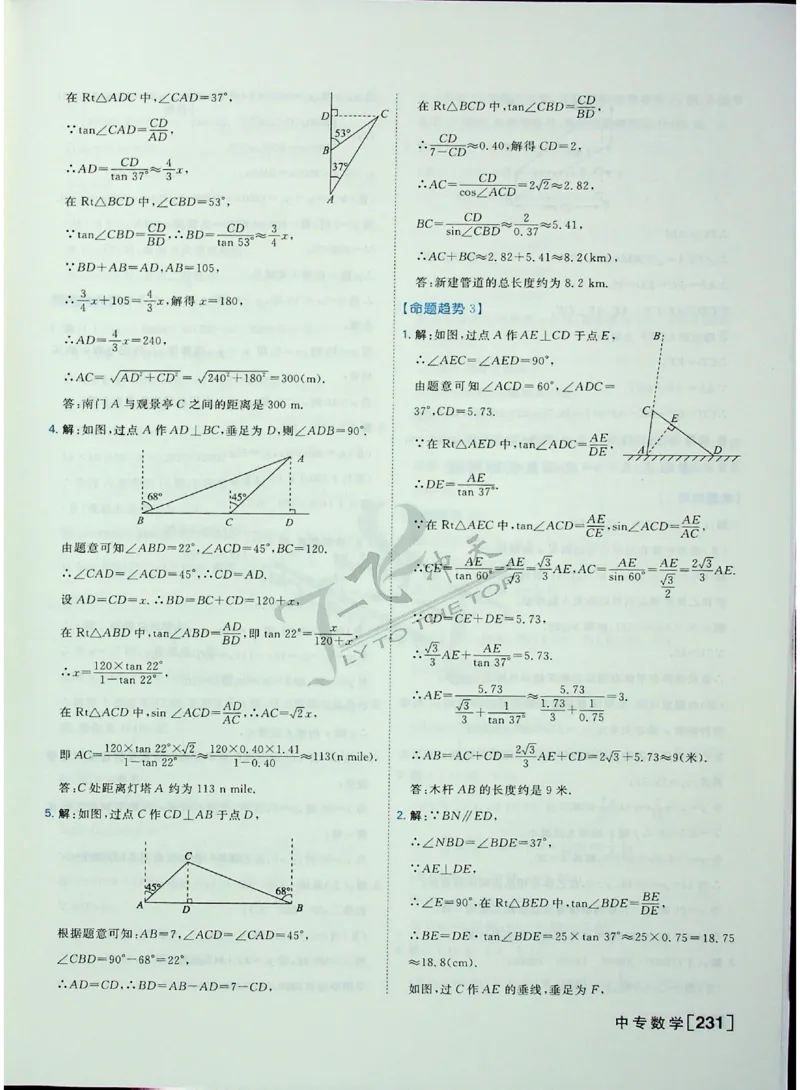 在 Rt△ADC 中,∠CAD=37°,
∵tan∠CAD=CD/AD,
∴AD=CD/tan 37°≈4/3x,
在 Rt△BCD 中,∠CBD=53°,
∵tan∠CBD=CD/BD,∴BD=CD/tan 53°≈3/4x,
∵BD+AB=AD,AB=105,
∴3/4x+105=4/3x,解得 x=180,
∴AD=4/3x=240,
∴AC=√(AD²+CD²)=√(240²+180²)=300(m).
答:南门 A 与观景亭 C 之间的距离是 300 m.
D
C
53°
B
37°
A
4. 解:如图,过点 A 作 AD⊥BC,垂足为 D,则∠ADB=90°.
A
68°
45°
B
C
D
由题意可知∠ABD=22°,∠ACD=45°,BC=120.
∴∠CAD=∠ACD=45°,∴CD=AD.
设 AD=CD=x.∴BD=BC+CD=120+x,
在 Rt△ABD 中,tan∠ABD=AD/BD,即 tan 22°=x/(120+x),
∴x=(120×tan 22°)/(1−tan 22°),
在 Rt△ACD 中,sin ∠ACD=AD/AC,∴AC=√2x,
即 AC=(120×tan 22°×√2)/(1−tan 22°)≈(120×0.40×1.41)/(1−0.40)≈113(n mile).
答:C 处距离灯塔 A 约为 113 n mile.
5. 解:如图,过点 C 作 CD⊥AB 于点 D,
C
45°
68°
A
D
B
根据题意可知:AB=7,∠ACD=∠CAD=45°,
∠CBD=90°−68°=22°,
∴AD=CD,∴BD=AB−AD=7−CD,
在 Rt△BCD 中,tan∠CBD=CD/BD,
∴CD/(7−CD)≈0.40,解得 CD=2,
∴AC=CD/cos∠ACD=2√2≈2.82,
BC=CD/sin∠CBD≈2/0.37≈5.41,
∴AC+BC≈2.82+5.41≈8.2(km),
答:新建管道的总长度约为 8.2 km.
【命题趋势 3】
1. 解:如图,过点 A 作 AE⊥CD 于点 E,
∴∠AEC=∠AED=90°,
由题意可知∠ACD=60°,∠ADC=
37°,CD=5.73.
∵在 Rt△AED 中,tan∠ADC=AE/DE,
∴DE=AE/tan 37°.
B
C
E
A
D
∵在 Rt△AEC 中,tan∠ACD=AE/CE,sin∠ACD=AE/AC,
∴CE=AE/tan 60°=AE/√3=√3/3AE,AC=AE/sin 60°=AE/(√3/2)=2√3/3AE.
∵CD=CE+DE=5.73,
∴√3/3AE+AE/tan 37°=5.73.
∴AE=5.73/(√3/3+1/tan 37°)≈5.73/(1.73/3+1/0.75)=3.
∴AB=AC+CD=2√3/3AE+CD=2√3+5.73≈9(米).
答:木杆 AB 的长度约是 9 米.
2. 解:∵BN∥ED,
∴∠NBD=∠BDE=37°,
∵AE⊥DE,
∴∠E=90°,在 Rt△BED 中,tan∠BDE=BE/DE,
∴BE=DE·tan∠BDE=25×tan 37°≈25×0.75=18.75
≈18.8(cm).
如图,过 C 作 AE 的垂线,垂足为 F,
一飞冲天
FLY TO THE TOP
中专数学[231]